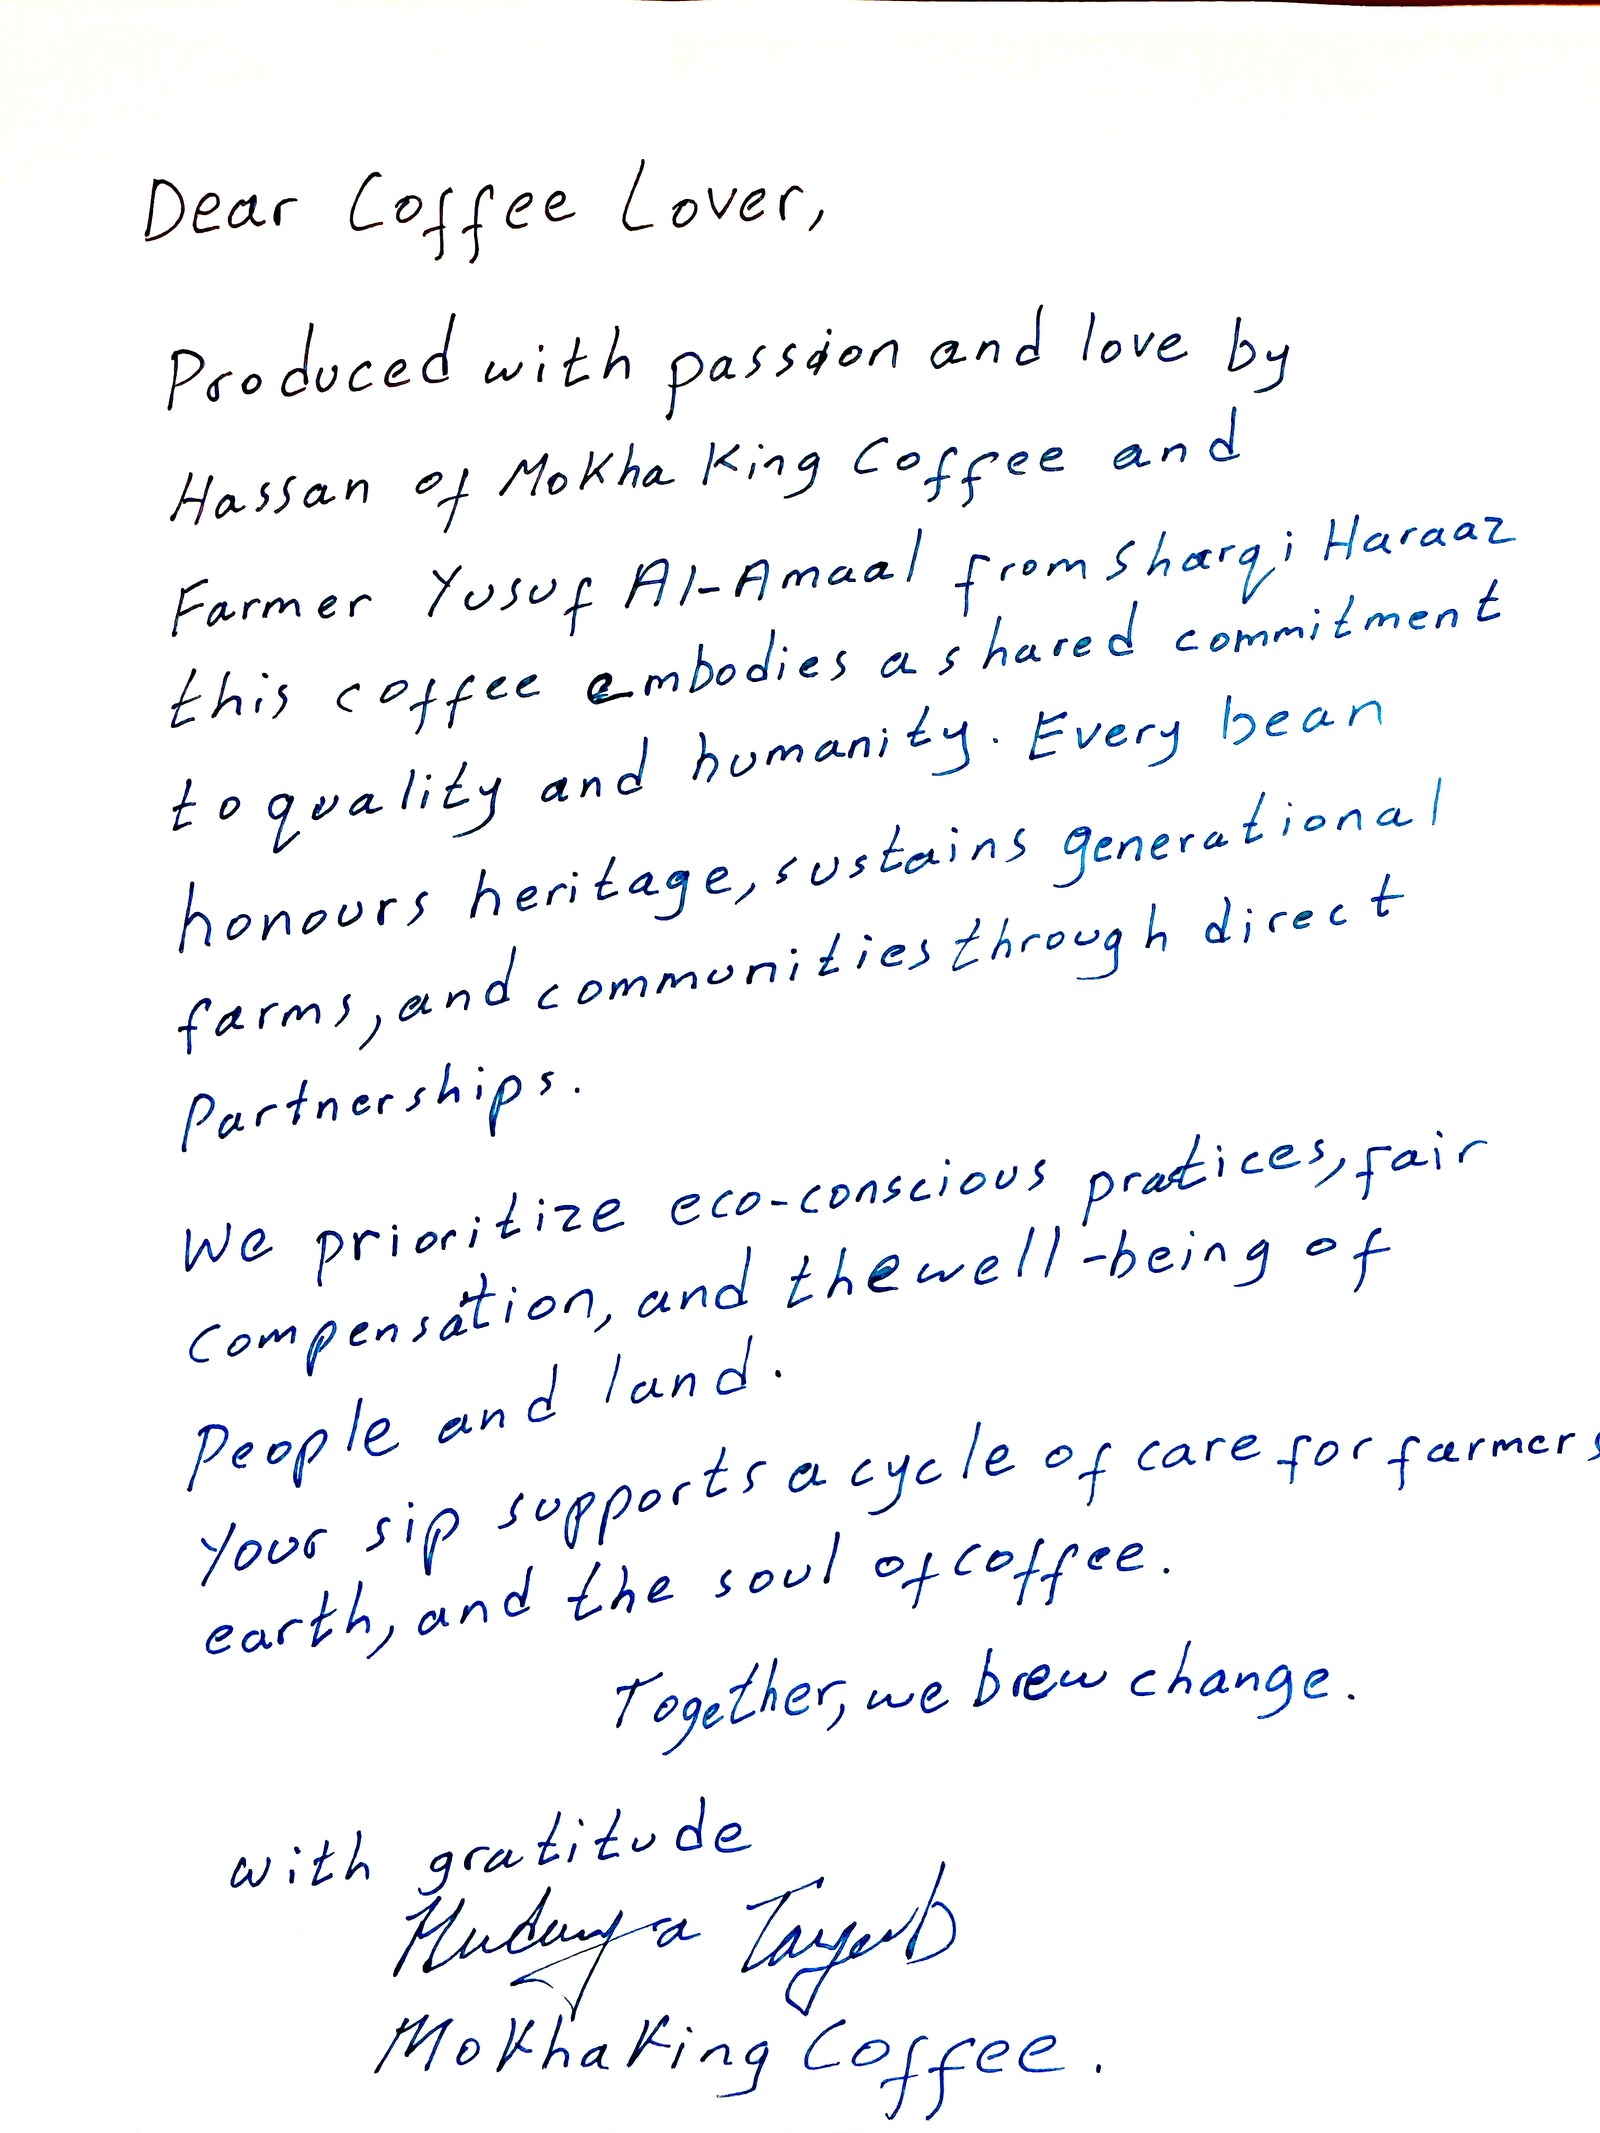 Dear Coffee Lover,
Produced with passion and love by
Hassan of Mokha King Coffee and
Farmer Yusuf Al-Amaal from Sharqi Haraaz
this coffee embodies a shared commitment
to quality and humanity. Every bean
honours heritage, sustains generational
farms, and communities through direct
Partnerships.
We prioritize eco-conscious pratices, fair
compensation, and the well-being of
People and land.
Your sip supports a cycle of care for farmers
earth, and the soul of coffee.
Together, we brew change.
with gratitude
Tayeb
Mokha King Coffee.